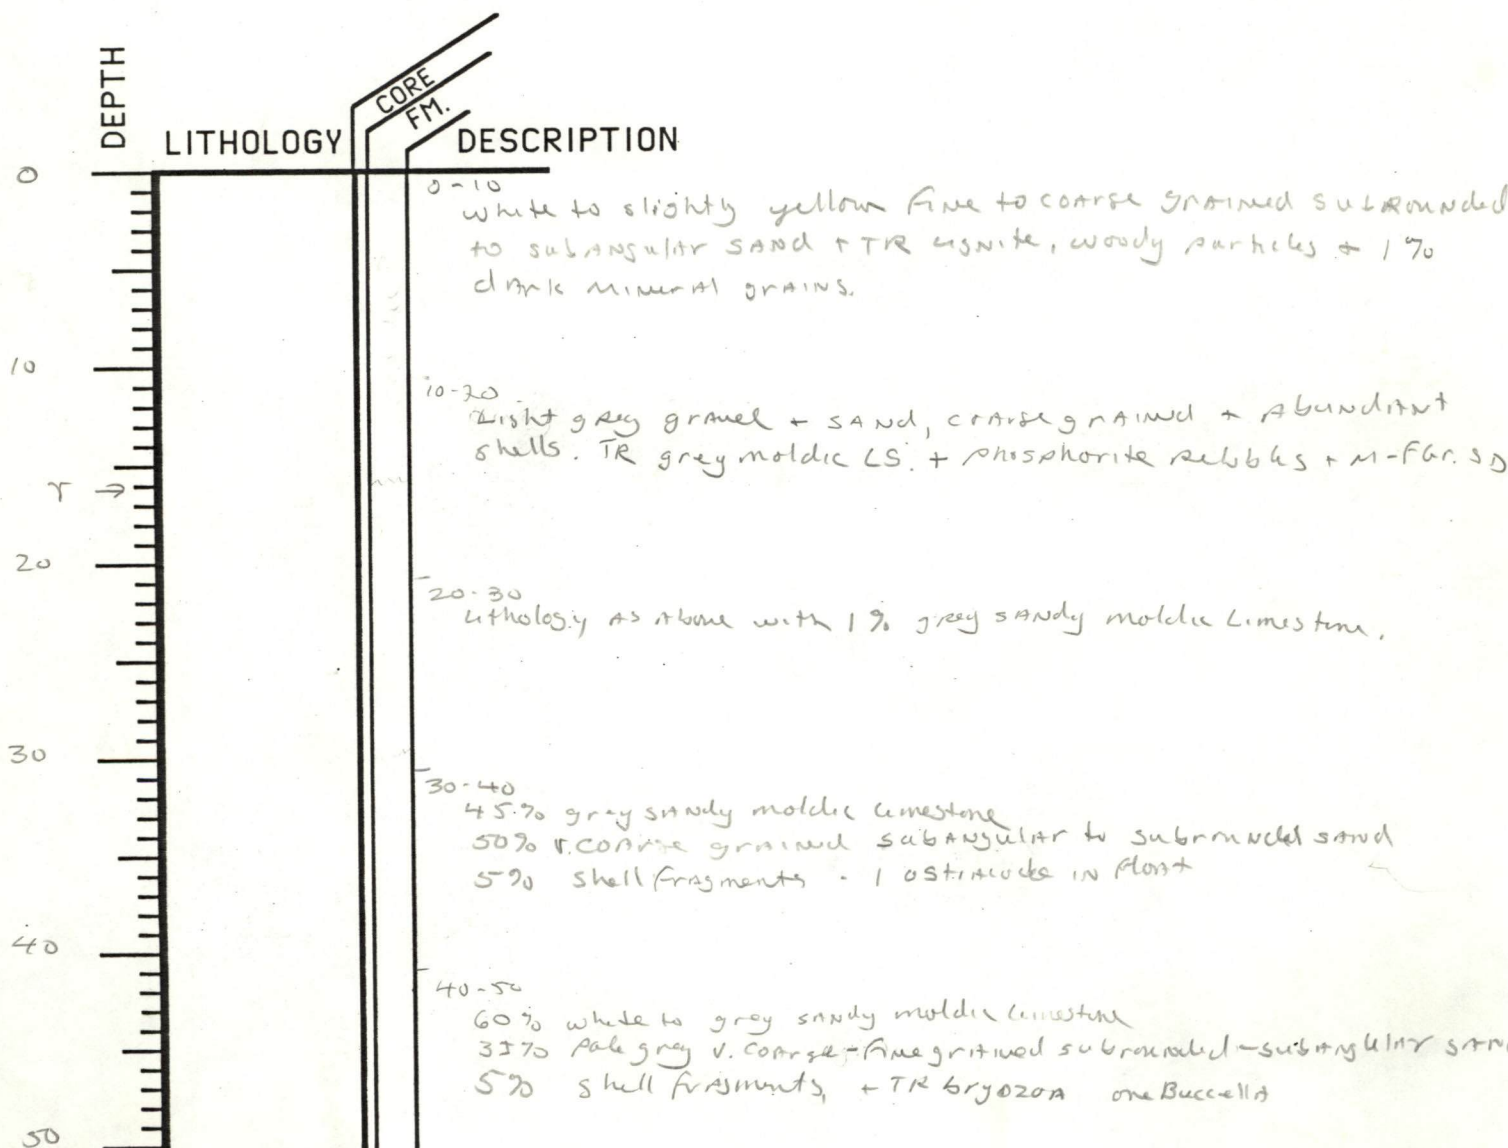 DEPTH
LITHOLOGY
CORE
FM.
DESCRIPTION
0
0-10
white to slightly yellow fine to coarse grained subrounded
to subangular sand + TR lignite, woody particles + 1%
dark mineral grains.
10
10-20
Light grey gravel + sand, coarse grained + Abundant
shells. TR grey moldic LS. + phosphorite pebbles + M-FGr. SD
→
20
20-30
Lithology As Above with 1% grey sandy moldic Limestone.
30
30-40
45% grey sandy moldic limestone
50% v. coarse grained subangular to subrounded sand
5% shell fragments . 1 ostracode in float
40
40-50
60% white to grey sandy moldic limestone
35% pale grey v. coarse-fine grained subrounded-subangular
5% shell fragments, + TR bryozoa one Buccella
50